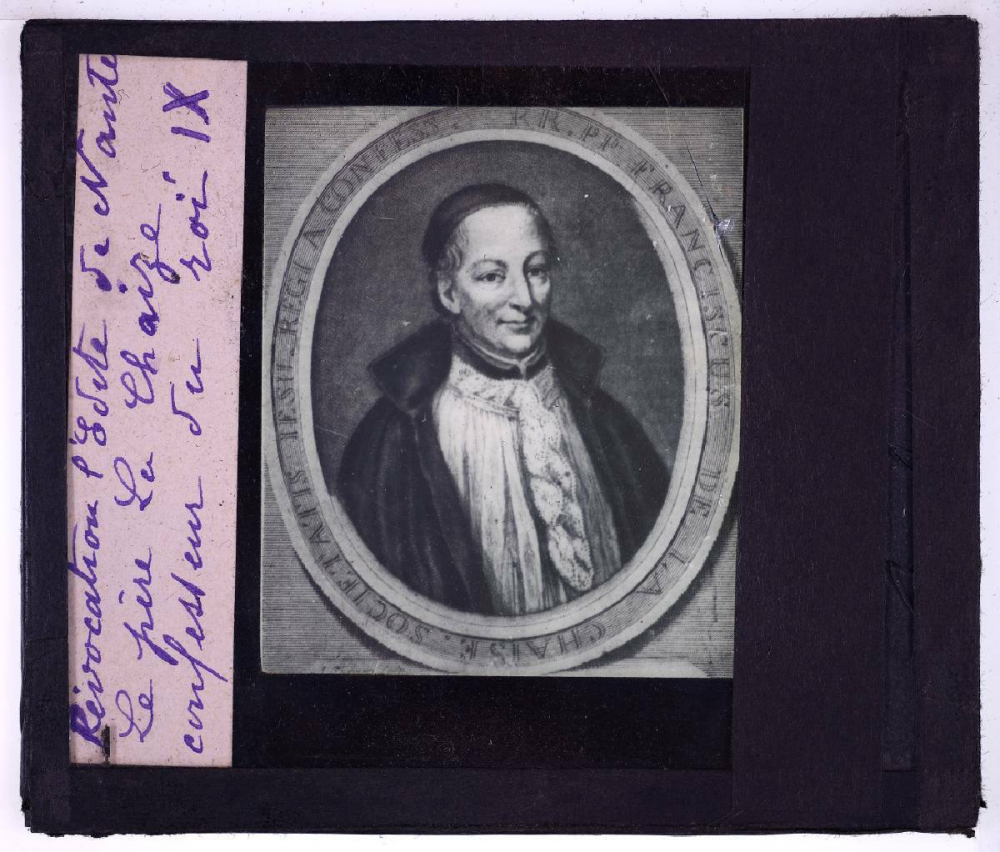 Révocation l'Edite de Nante
Le père La Chaize
confesseur du roi IX
RR. PP. FRANCISCUS DE LA CHAISE SOCIETATIS IESU, REGI A CONFESS.